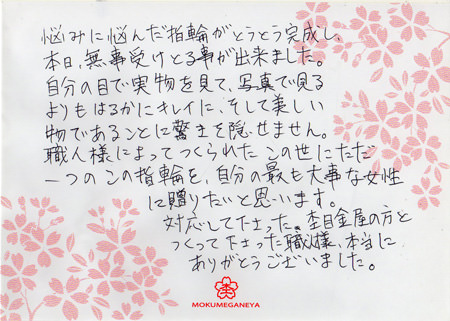 悩みに悩んだ指輪がとうとう完成し、
本日、無事受けとる事が出来ました。
自分の目で実物を見て、写真で見る
よりもはるかにキレイに、そして美しい
物であることに驚きを隠せません。
職人様によってつくられたこの世にただ
一つのこの指輪を、自分の最も大事な女性
に贈りたいと思います。
対応して下さった、杢目金屋の方と
つくって下さった職人様、本当に
ありがとうございました。
杢
MOKUMEGANEYA